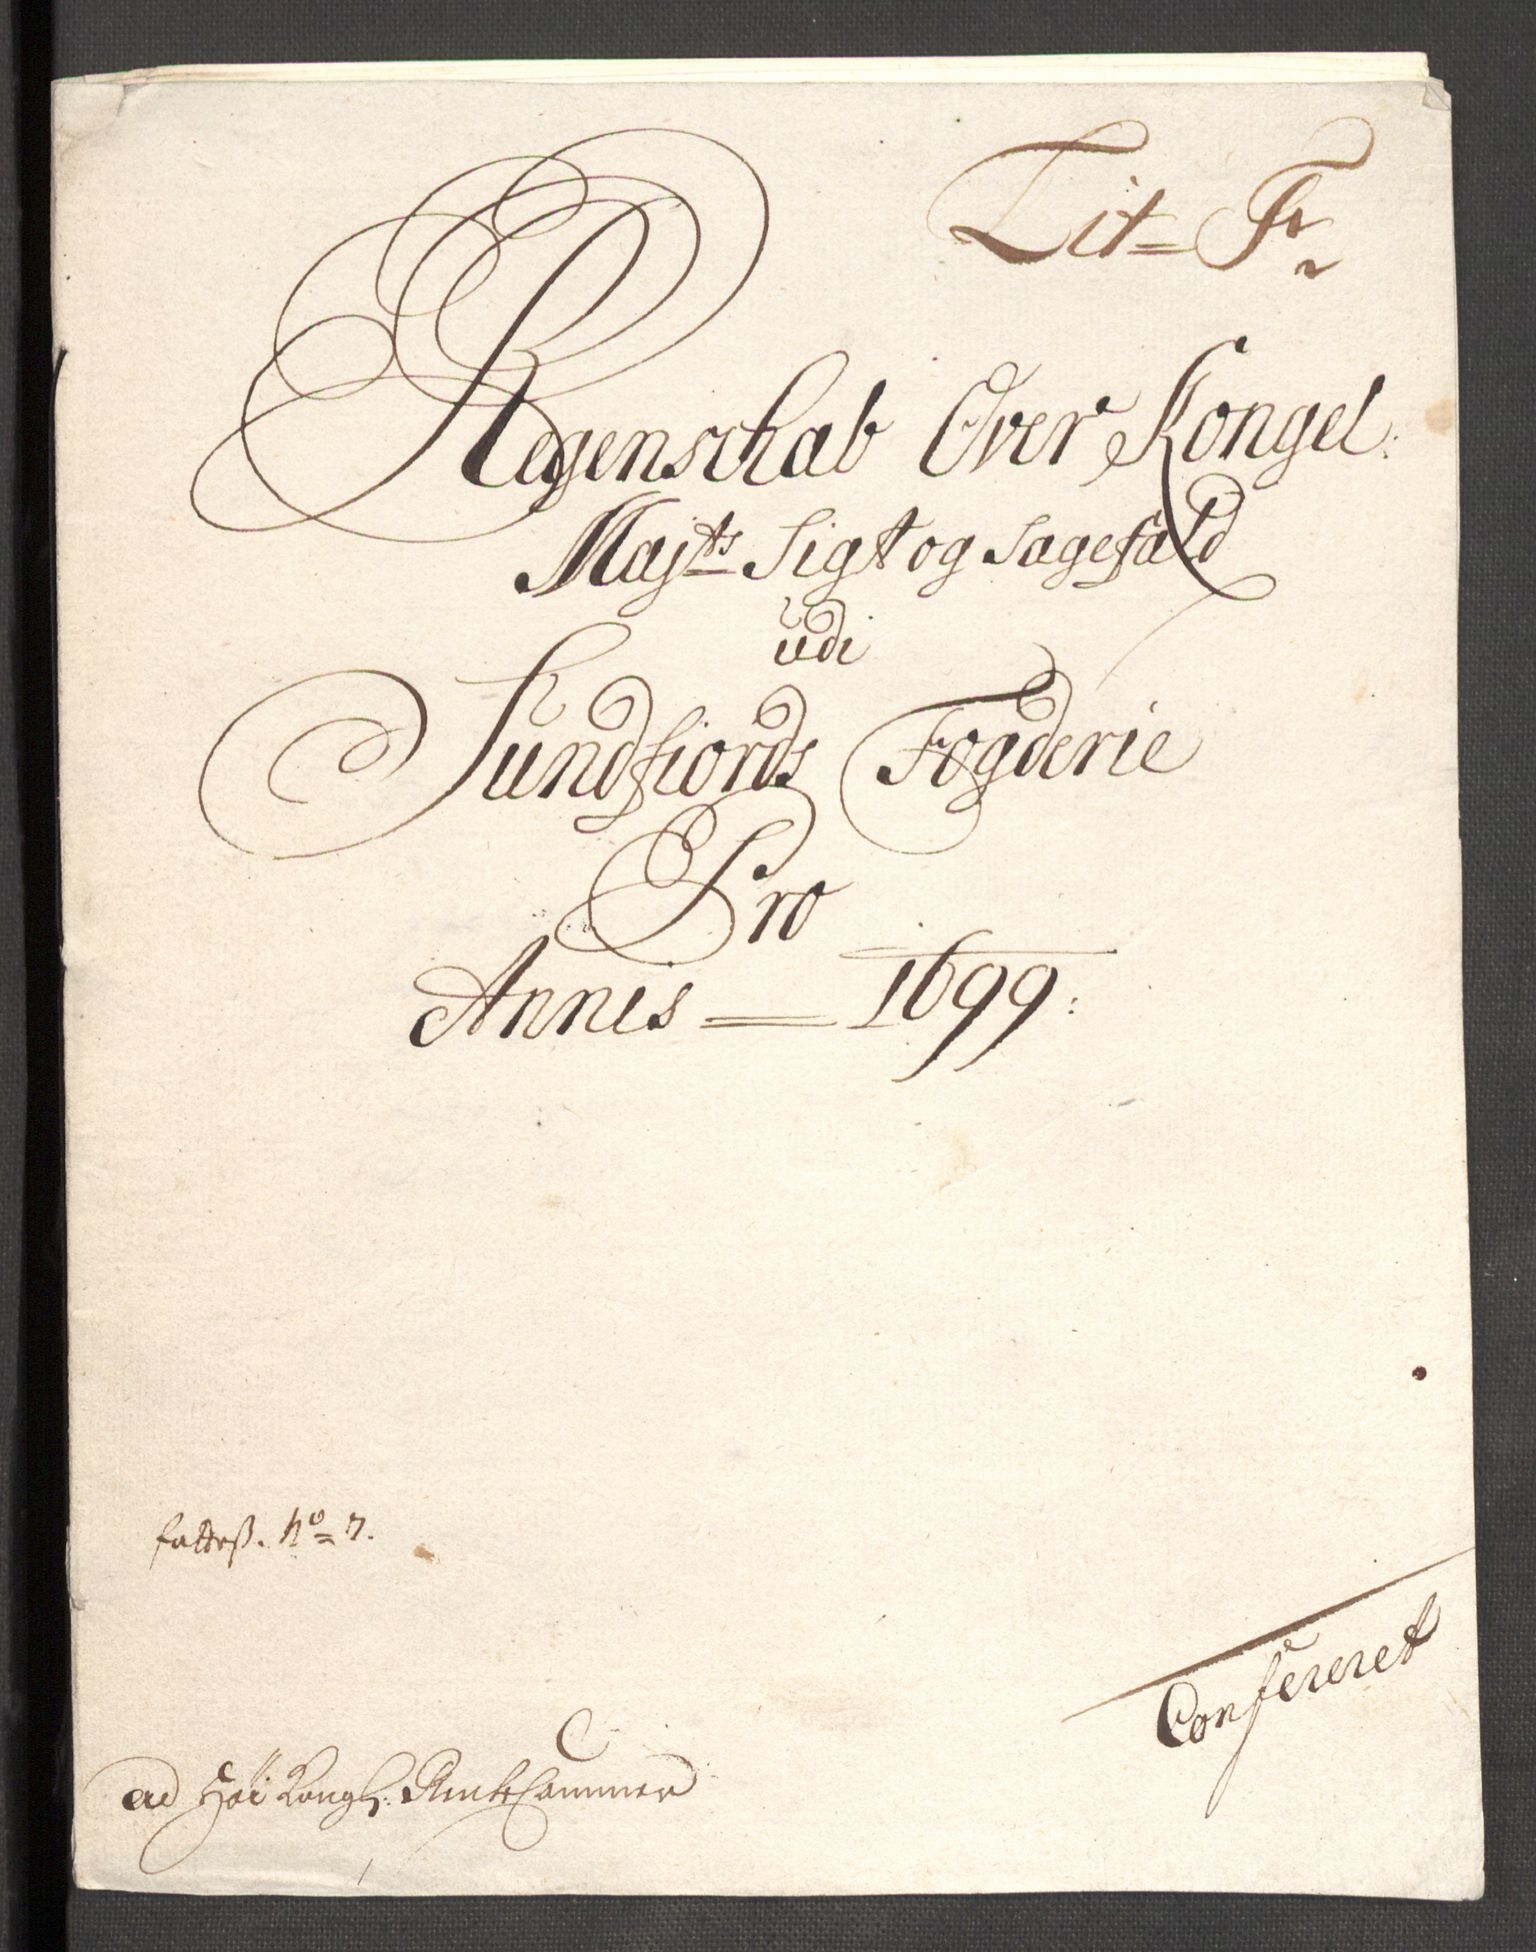 Lit= F
Regenschab Over Kongel:
Majts Sigt og Sagefald
udi
Sundfiords Fogderie
Pro
Annis 1699:
No= 7.
Confereret
ad Höi Kongl: RentCammer